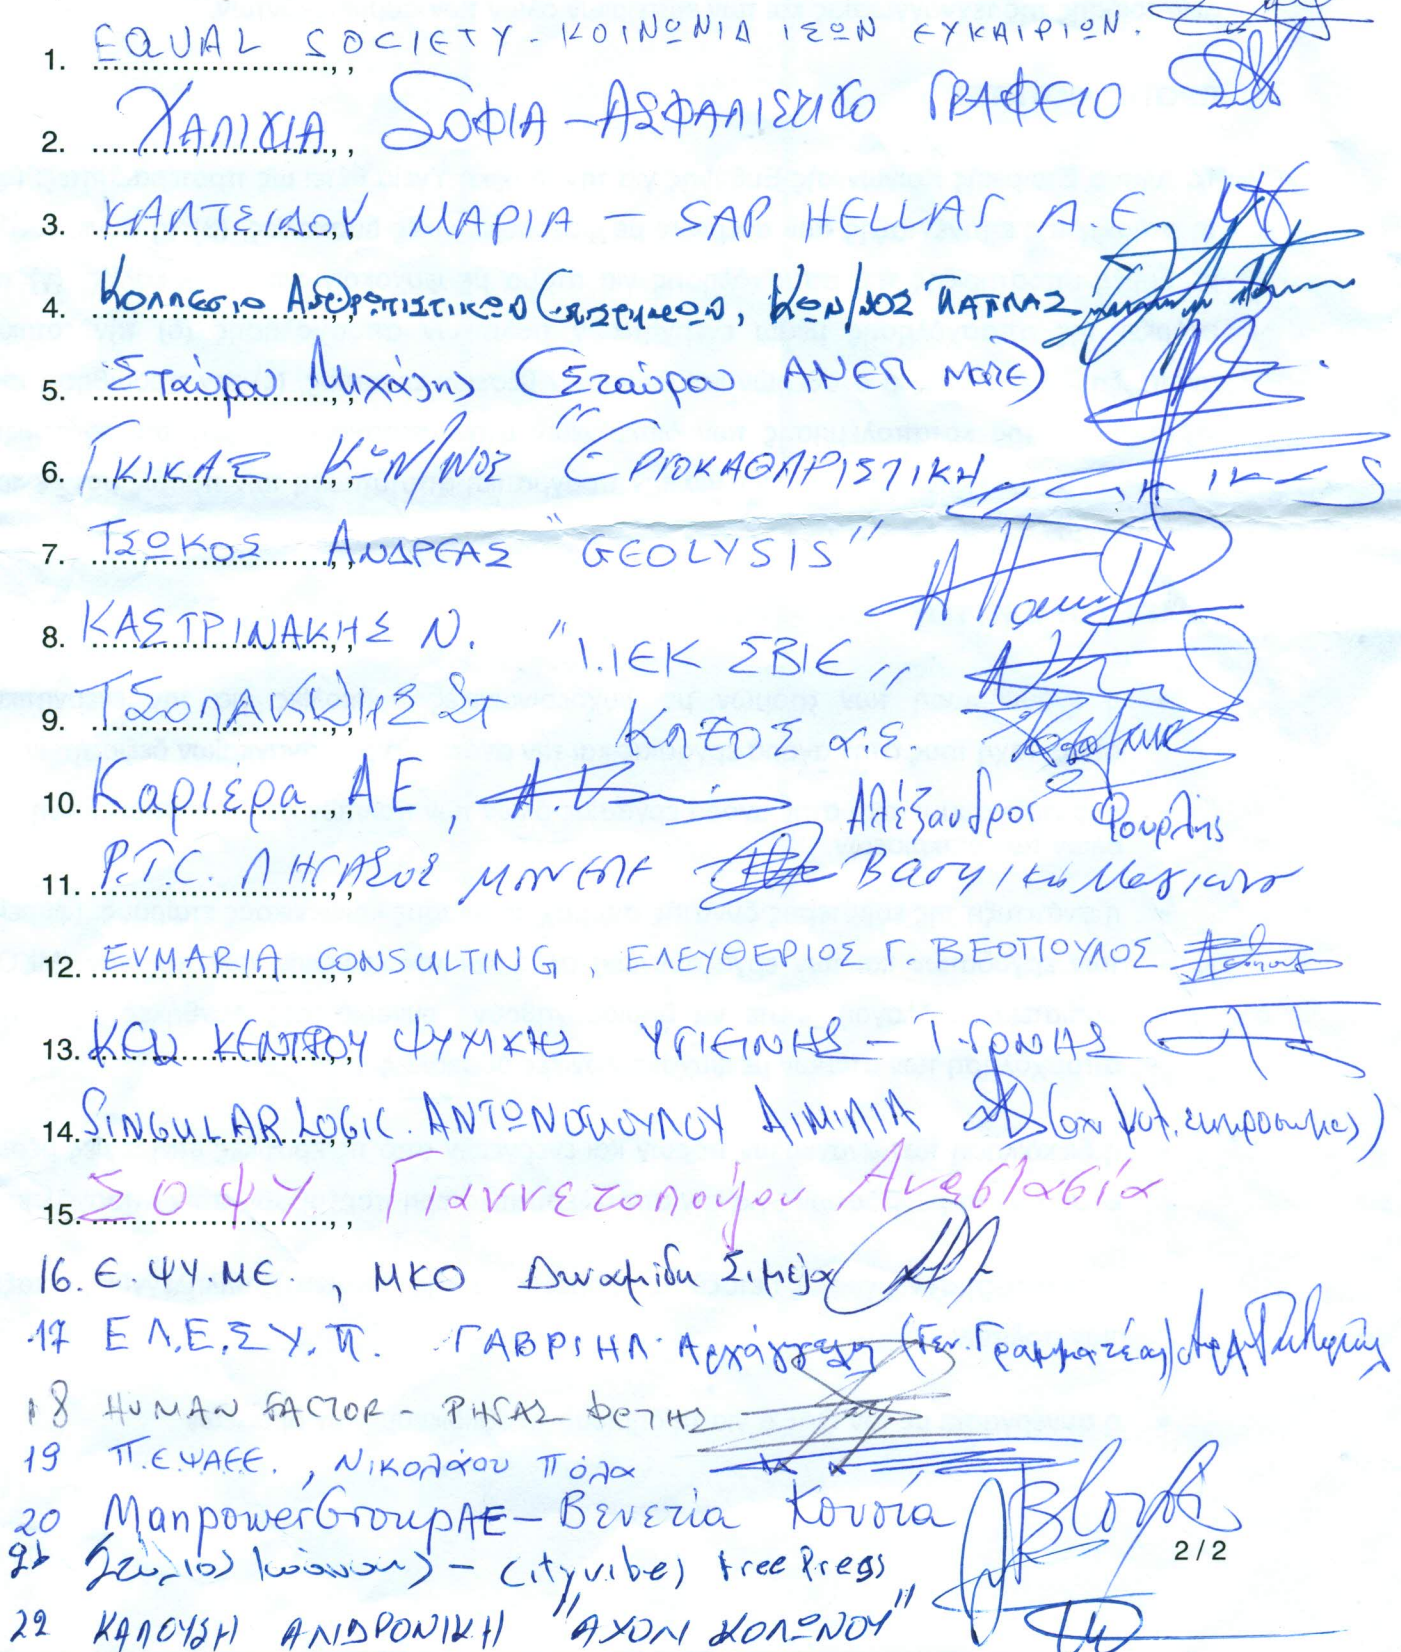 1. EQUAL SOCIETY - ΚΟΙΝΩΝΙΑ ΙΣΩΝ ΕΥΚΑΙΡΙΩΝ.
2. ΧΑΛΙΚΙΑ ΣΟΦΙΑ - ΑΣΦΑΛΙΣΤΙΚΟ ΓΡΑΦΕΙΟ
3. ΚΑΛΤΣΙΔΟΥ ΜΑΡΙΑ - SAP HELLAS A.E.
4. ΚΟΛΛΕΓΙΟ ΑΝΘΡΩΠΙΣΤΙΚΩΝ ΕΠΙΣΤΗΜΩΝ, ΚΩΝ/ΝΟΣ ΠΑΠΠΑΣ
5. Σταύρου Μιχάλης (Σταύρου ΑΝΕΠ ΜΕΠΕ)
6. ΓΚΙΚΑΣ ΚΩΝ/ΝΟΣ ΕΡΓΟΚΑΘΑΡΙΣΤΙΚΗ
7. ΤΣΩΚΟΣ ΑΝΔΡΕΑΣ "GEOLYSIS"
8. ΚΑΣΤΡΙΝΑΚΗΣ Ν. "Ι.ΙΕΚ ΣΒΙΕ"
9. α.ε.
10. Καριέρα ΑΕ, Αλέξανδρος Φουρλής
11. P.T.C. ΠΗΓΑΣΟΣ ΜΟΝ ΕΠΕ
12. EVMARIA CONSULTING, ΕΛΕΥΘΕΡΙΟΣ Γ. ΒΕΟΠΟΥΛΟΣ
13. ΚΕΝΤΡΟΥ ΨΥΧΙΚΗΣ ΥΓΙΕΙΝΗΣ - Τ. ΓΟΝΗΣ
14. SINGULARLOGIC. ΑΝΤΩΝΟΠΟΥΛΟΥ ΑΙΜΙΛΙΑ
15. ΣΟΨΥ Γιαννετοπούλου Αναστασία
16. Ε.ΨΥ.ΜΕ., ΜΚΟ
17 Ε.Λ.Ε.ΣΥ.Π. ΓΑΒΡΙΗΛ Αρχάγγελη (Γεν. Γραμματέας)
18 HUMAN FACTOR - ΡΗΓΑΣ ΦΩΤΗΣ
19 Π.Ε.ΨΑΕΕ., Νικολάου Πόλα
20 ManpowerGroup ΑΕ - Βενετία Κουσία
2/2
21 Στέλιος Ιωάννου - Cityvibes Free Press
22 ΚΑΛΟΥΔΗ ΑΝΔΡΟΝΙΚΗ "ΑΧΟΛΙ ΚΟΛΩΝΟΥ"